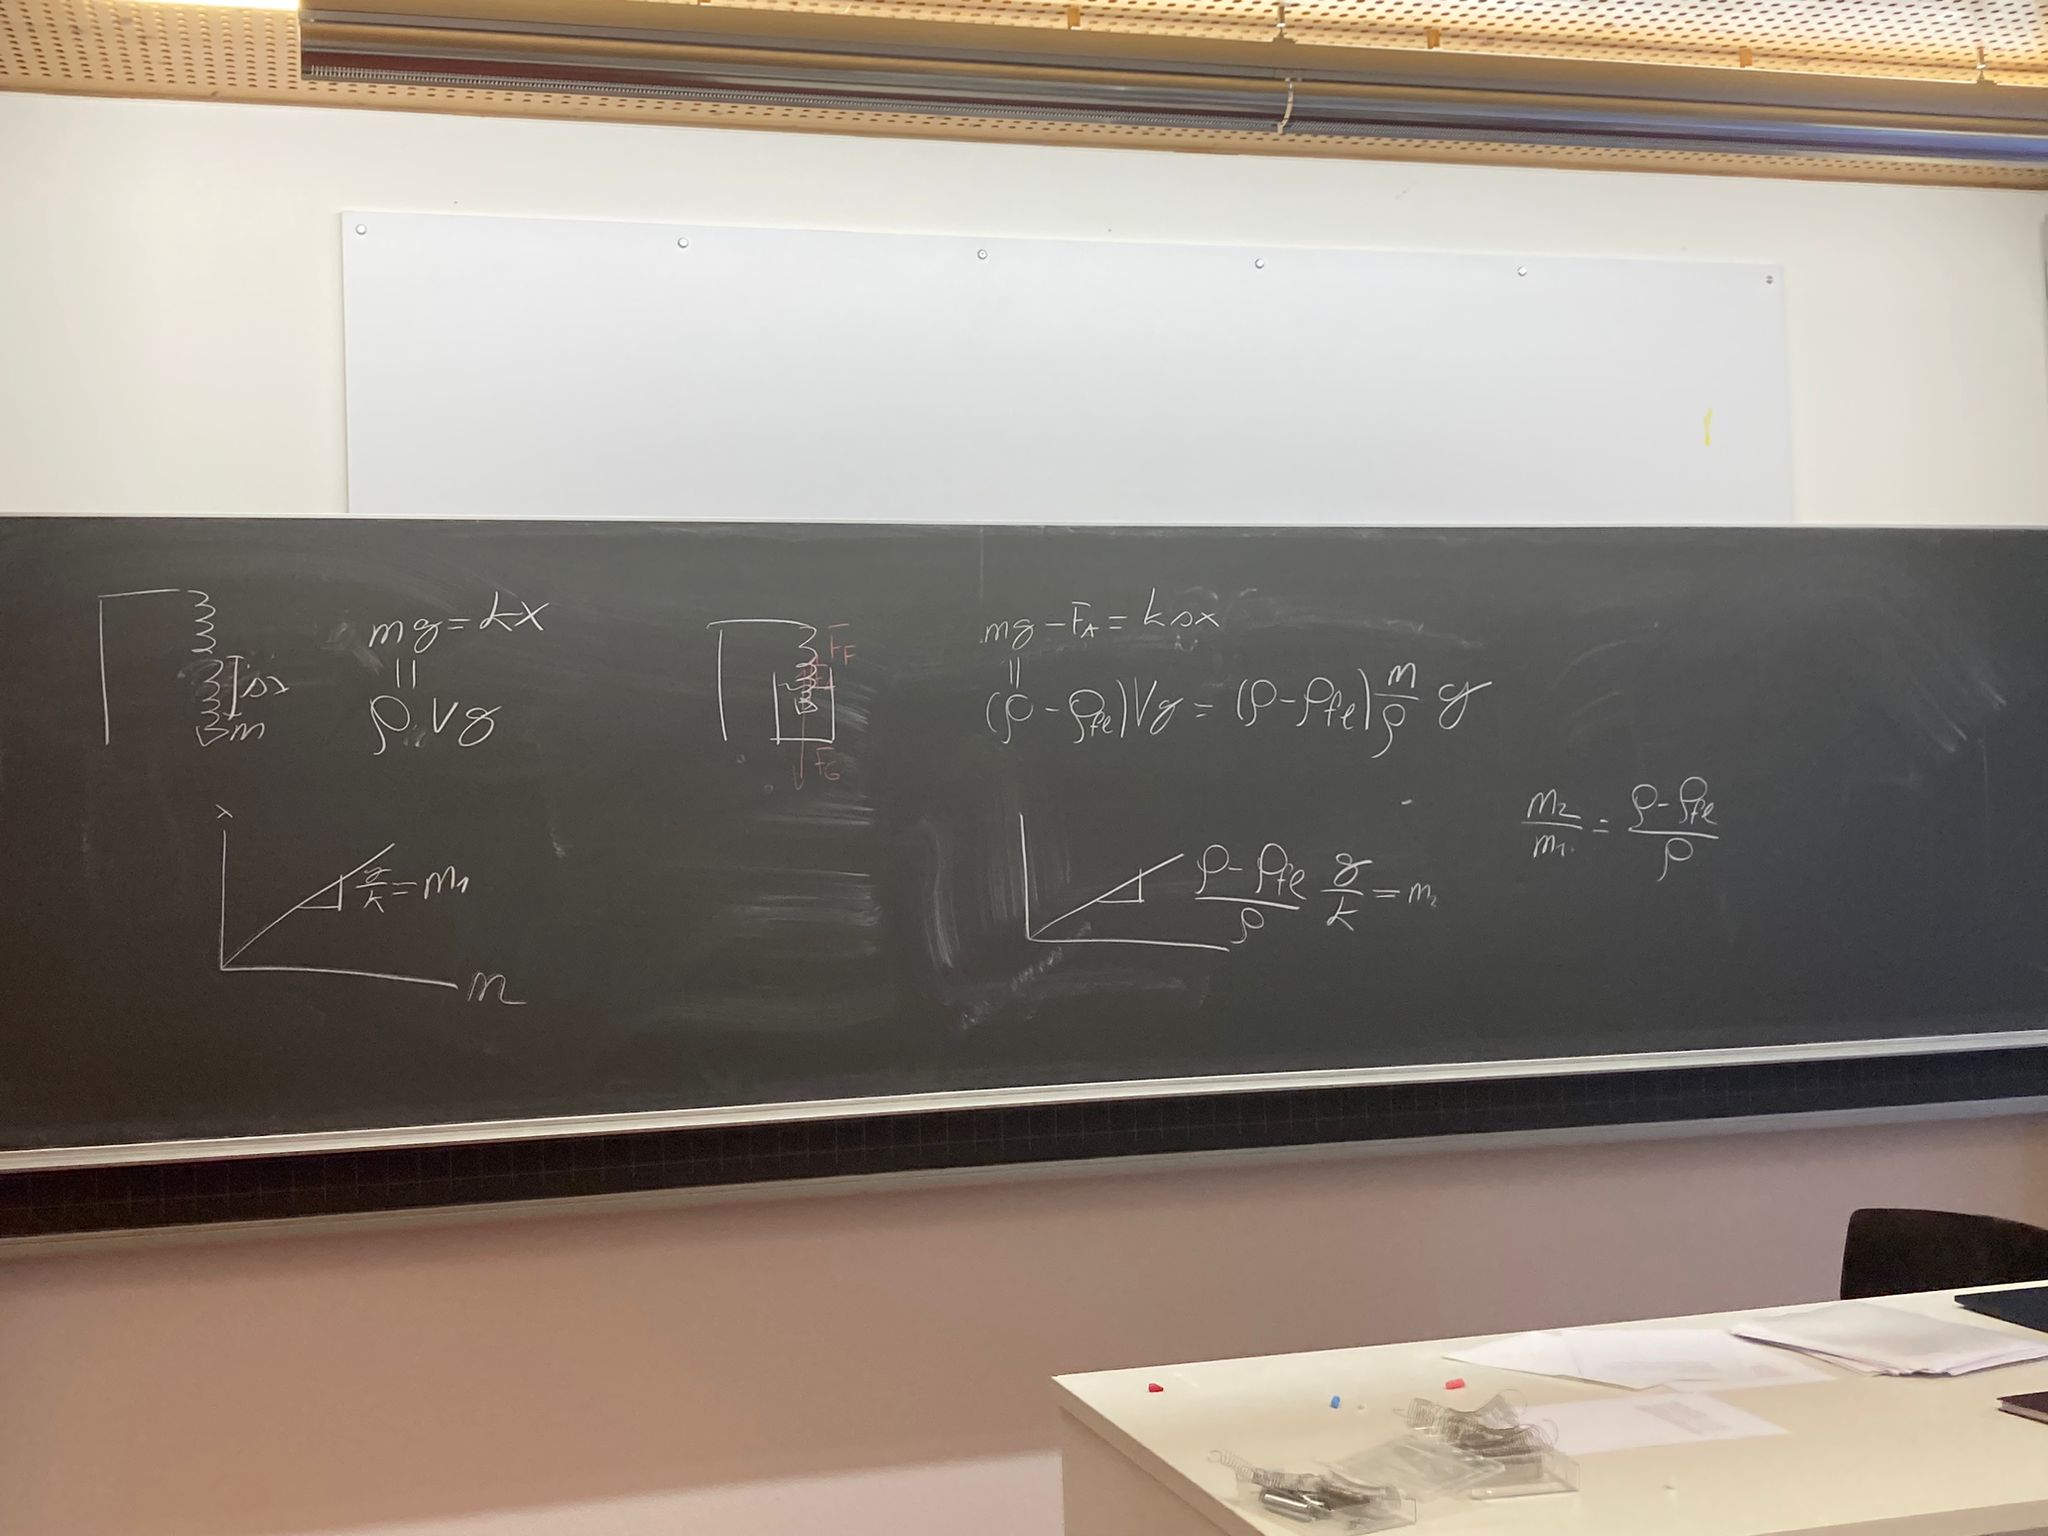 mg = kx
||
ρ V g
Δx
m
x
g/k = m₁
m
F_F
F_A
F_G
mg - F_A = k Δx
||
(ρ - ρ_fl) V g = (ρ - ρ_fl) m/ρ g
(ρ - ρ_fl)/ρ g/k = m₂
m₂/m₁ = (ρ - ρ_fl)/ρ